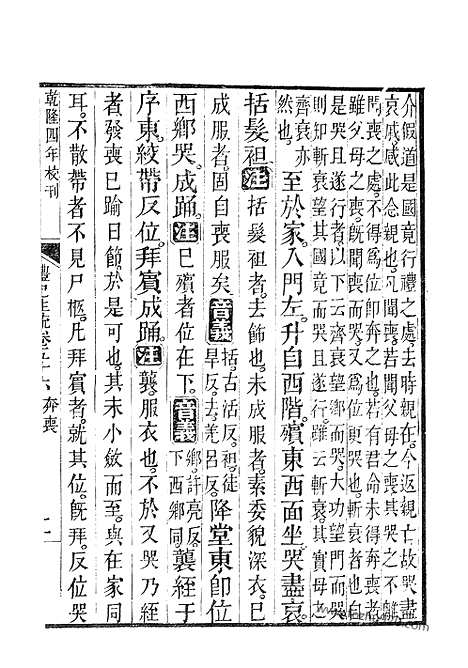 介假道是國竟行禮之處去時親在今返親亡故哭盡
哀戚感此念親也。凡聞喪若聞父母之喪其哭之不離
聞喪之處不得爲位即奔之也。若有君命未得奔喪者
雖父母之喪。旣聞喪而哭。又爲位更哭也。斬衰者也自
是哭且遂行者。以下云齊衰望鄉而哭。大功望門而哭
則知斬衰望其國竟而哭且遂行。雖云斬衰其實母之
齊衰亦
然也。
至於家。入門左。升自西階。殯東西面坐。哭盡哀。
括髮袒。注括髮袒者。去飾也。未成服者。素委貌深衣。已
成服者。固自喪服矣。音義括。古活反。袒。徒
旱反。去。羌呂反。降堂東。卽位
西鄉哭。成踊。注已殯者位在下。音義鄉。許亮反。
下西鄉同。襲絰于
序東。絞帶反位。拜賓成踊。注襲。服衣也。不於又哭乃絰
者。發喪已踰日節。於是可也。其未小斂而至。與在家同
耳。不散帶者不見尸柩。凡拜賓者。就其位。旣拜。反位哭
乾隆四年校刊
禮記注疏卷五十六 奔喪